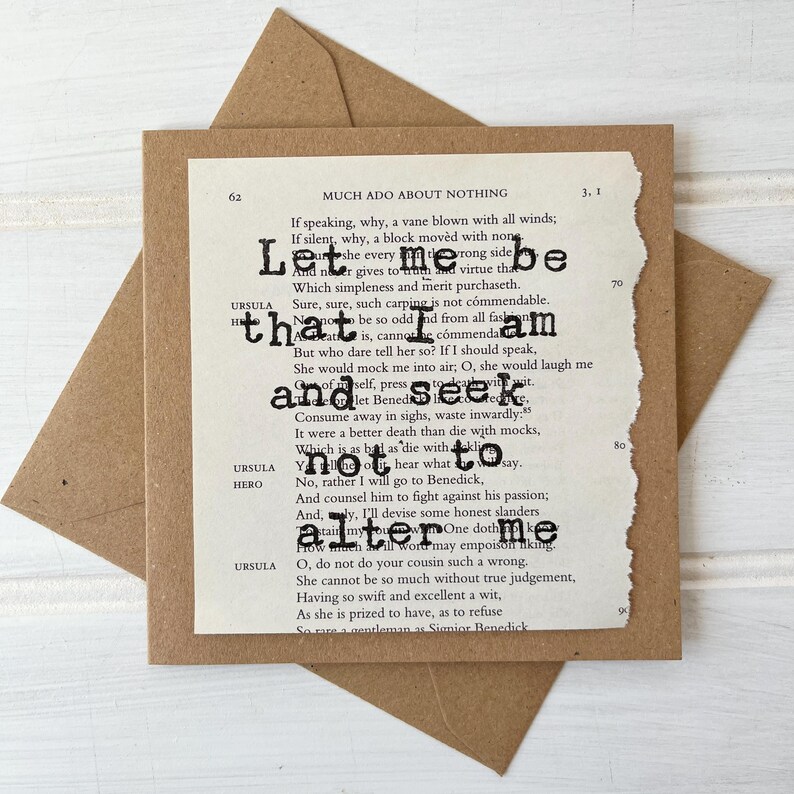 62 MUCH ADO ABOUT NOTHING 3, 1
Let me be
that I am
and seek
not to
alter me
If speaking, why, a vane blown with all winds;
If silent, why, a block movèd with none.
she every the wrong side
And never gives to truth and virtue that
Which simpleness and merit purchaseth. 70
URSULA Sure, sure, such carping is not cómmendable.
HERO to be so odd and from all fashions
As is, cannot be cómmendable.
But who dare tell her so? If I should speak,
She would mock me into air; O, she would laugh me
Out of myself, press to death with wit.
Therefore let Benedick, like
Consume away in sighs, waste inwardly:85
It were a better death than die with mocks,
Which is as bad as die with 80
URSULA Yet tell her hear what will say.
HERO No, rather I will go to Benedick,
And counsel him to fight against his passion;
And, I'll devise some honest slanders
One doth not know
How much an ill word may empoison liking.
URSULA O, do not do your cousin such a wrong.
She cannot be so much without true judgement,
Having so swift and excellent a wit,
As she is prized to have, as to refuse 90
So rare a gentleman as Signior Benedick